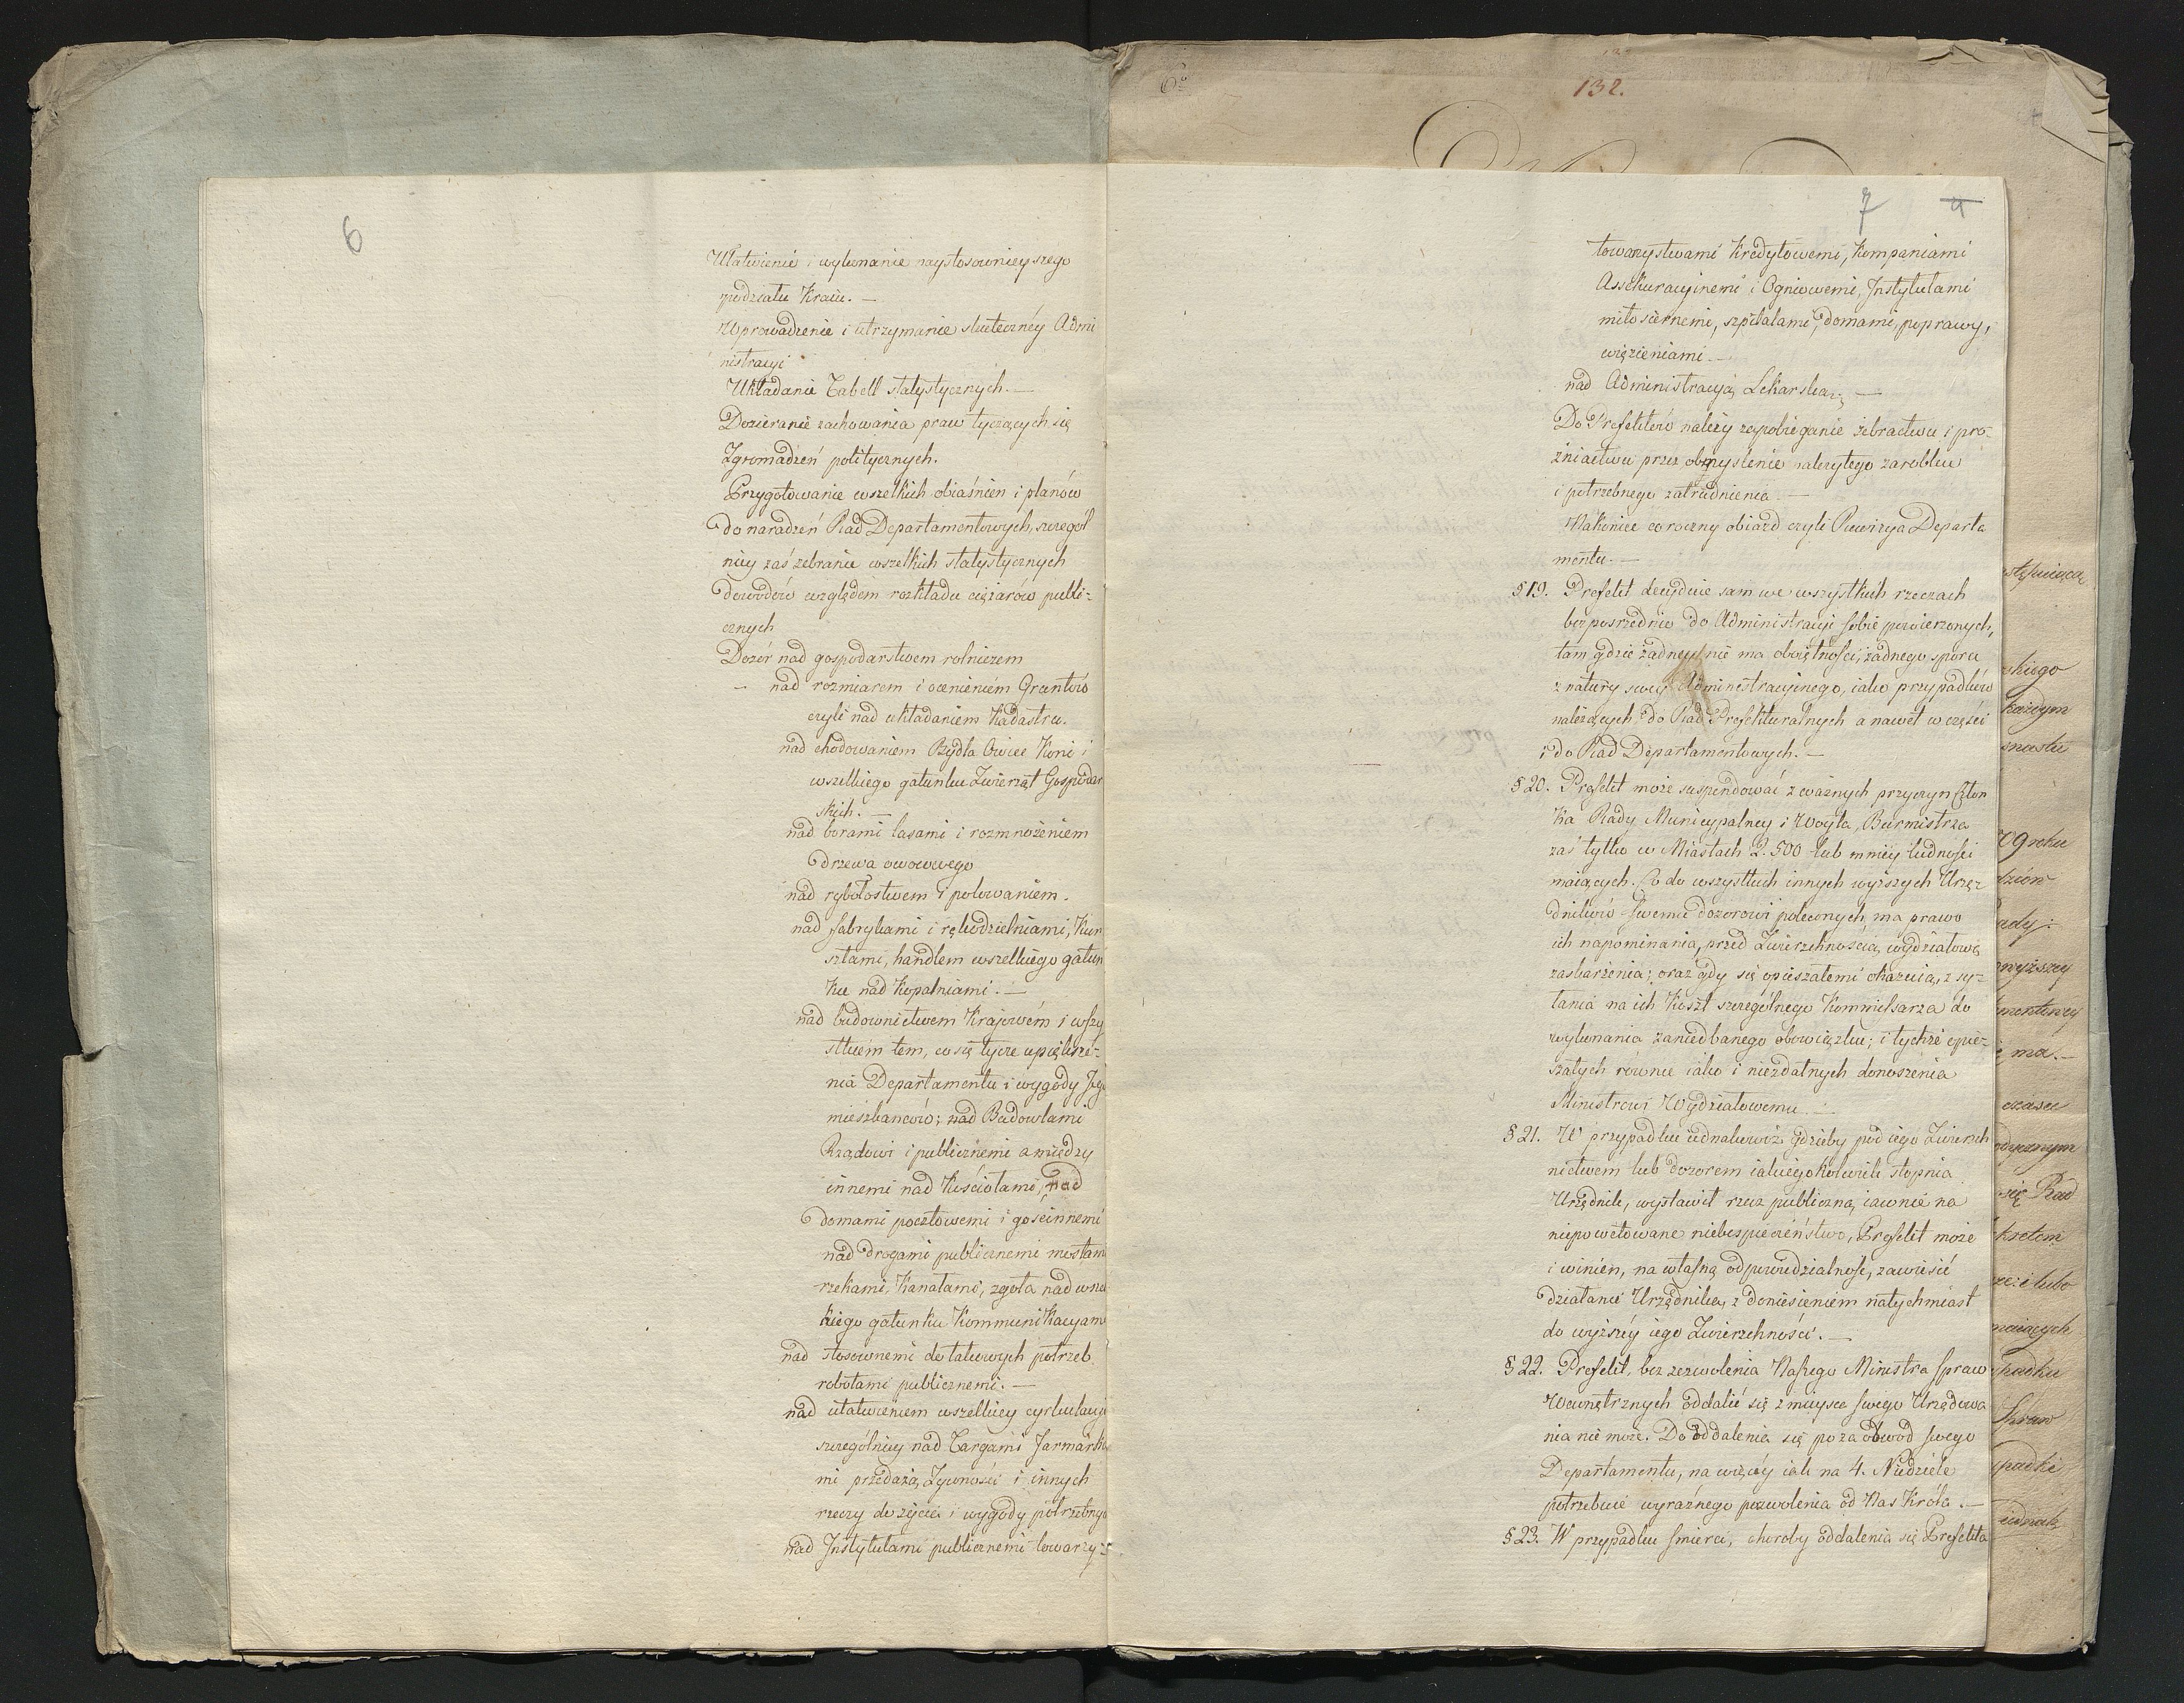 6
Ułatwienie i wykonanie naystosownieyszego
podziału Kraiu. —
Wprowadzenie i utrzymanie skuteczney Admi
nistracyi
Układanie Tabell statystycznych. —
Dozieranie zachowania praw tyczących się
Zgromadzeń politycznych.
Przygotowanie wszelkich obiaśnien i planów
do naradzeń Rad Departamentowych, szczegól
niey zaś zebranie wszelkich statystycznych
dowodów względem rozkładu ciężarów publi-
cznych
Dozór nad gospodarstwem rolniczem
— nad rozmiarem i ocenieniem Gruntów
czyli nad układaniem Kadastru.
nad chodowaniem Bydła Owiec Koni i
wszelkiego gatunku Zwierząt Gospodar
skich. —
nad borami lasami i rozmnożeniem
drzewa owocowego
nad rybołostwem i polowaniem.
nad fabrykami i rękodzielniami, Kun
sztami, handlem wszelkiego gatun
ku nad Kopalniami. —
nad budownictwem Krajowém i wszy
stkiem tem, co się tycze upiększe-
nia Departamentu i wygody Jego
mieszkanców; nad Budowlami
Rządowi i publicznemi a między
innemi nad Kościołami, nad
domami pocztowemi i goscinnemi
nad drogami publicznemi mostam
rzekami, Kanałami, zgoła nad wsze
kiego gatunku Kommunikacyam
nad stosownemi do takowych potrzeb
robotami publicznemi. —
nad ułatwieniem wszelkiey cyrkulacyi
szczególniey nad Targami Jarmarka
mi przedażą Żywności i innych
rzeczy do życia i wygody potrzebnyc
nad Instytutami publicznemi towarzy-
6º
132.
7 4
towarzystwami Kredytowemi, Kompaniami
Assekuracyinemi i Ogniowemi, Instytutami
miłosiernemi, szpitalami, domami poprawy,
więzieniami. —
nad Administracyą Lekarską; —
Do Prefektów należy zapobieganie żebractwu i pro-
żniactwu przez obmyslenie należytego zarobku
i potrzebnego zatrudnienia. —
Nakoniec coroczny obiazd czyli Rewizya Departa
mentu. —
§ 19. Prefekt decyduie sam we wszystkich rzeczach
bezposrzednio do Administracyi sobie powierzonych,
tam gdzie żadney nie ma obiętności, żadnego sporu
z natury swey Administracyinego, iako przypadków
należących do Rad Prefekturalnych a nawet w części
i do Rad Departamentowych. —
§ 20. Prefekt może suspendować z ważnych przyczyn Człon
ka Rady Municypalney i Woyta, Burmistrza
zaś tylko w Miastach 2.500 lub mniey ludności
maiących. Co do wszystkich innych wyższych Urzę-
dników swemu dozorowi poleconych, ma prawo
ich napominania, przed Zwierzchnością wydziałową
zaskarżenia; oraz gdy się opieszałemi okazuią, z sy-
łania na ich koszt szczególnego Kommissarza do
wykonania zaniedbanego obowiązku; i tychże opie-
szałych równie iako i niezdatnych donoszenia
Ministrowi Wydziałowemu. —
§ 21. W przypadku iednakowoż gdzieby pod iego Zwierzch
nictwem lub dozorem iakiegokolwiek stopnia
Urzędnik, wystawił rzecz publiczną iawnie na
niepowetowane niebezpieczeństwo, Prefekt może
i winien, na własną odpowiedzialność, zawiesić
działanie Urzędnika, z doniesieniem natychmiast
do wyższéy iego Zwierzchności. —
§ 22. Prefekt, bez zezwolenia Naszego Ministra spraw
Wewnętrznych oddalić się z mieysca swego Urzędowa
nia nie może. Do oddalenia się po za obwód swego
Departamentu, na więcéy iak na 4. Niedziele
potrzebuie wyraźnego pozwolenia od Nas Króla. —
§ 23. W przypadku śmierci, choroby oddalenia się Prefekta
stępuiąca
skiego
każdym
09 roku
ady:
wyższey
mentowey
ma. —
czasu
się Rad
kretem
maiących
Spraw
padki
iednak